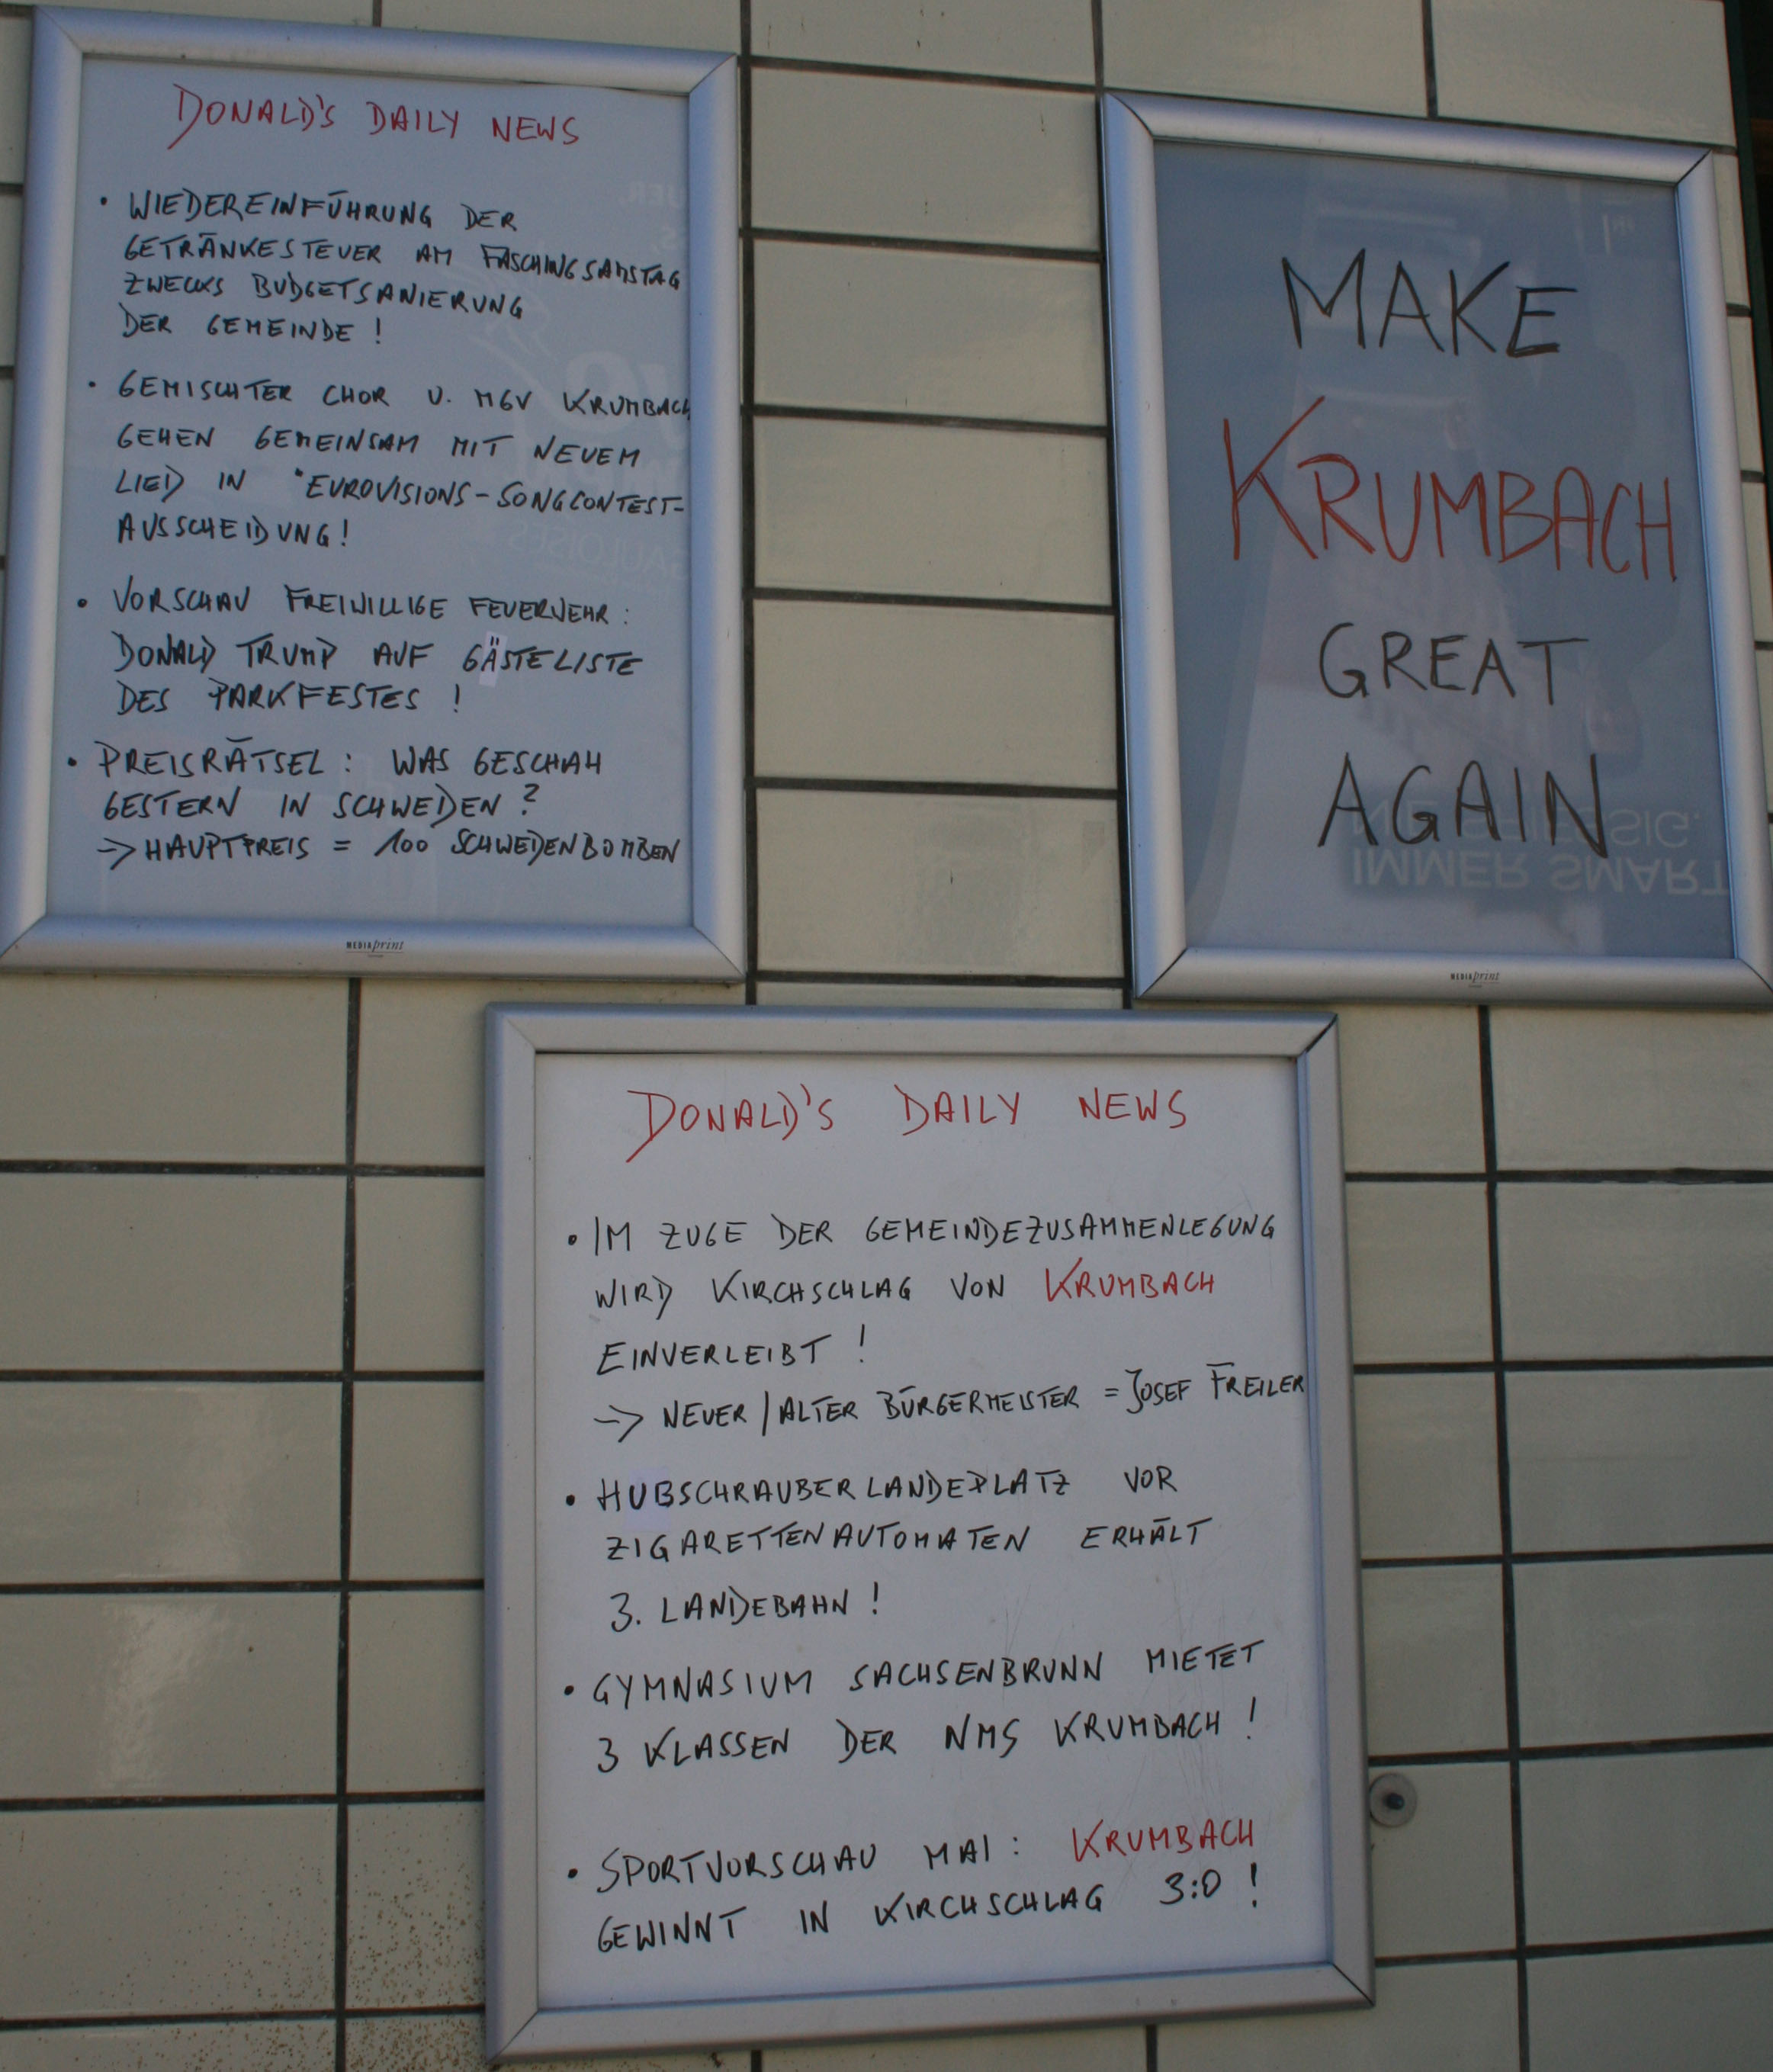 DONALD'S DAILY NEWS
• WIEDEREINFÜHRUNG DER
GETRÄNKESTEUER AM FASCHINGSAMSTAG
ZWECKS BUDGETSANIERUNG
DER GEMEINDE !
• GEMISCHTER CHOR U. MGV KRUMBACH
GEHEN GEMEINSAM MIT NEUEM
LIED IN "EUROVISIONS-SONGCONTEST-
AUSSCHEIDUNG!
• VORSCHAU FREIWILLIGE FEUERWEHR:
DONALD TRUMP AUF GÄSTELISTE
DES PARKFESTES !
• PREISRÄTSEL: WAS GESCHAH
GESTERN IN SCHWEDEN ?
-> HAUPTPREIS = 100 SCHWEDENBOMBEN
MEDIAprint
MAKE
KRUMBACH
GREAT
AGAIN
IMMER SMART
MEDIAprint
DONALD'S DAILY NEWS
• IM ZUGE DER GEMEINDEZUSAMMENLEGUNG
WIRD KIRCHSCHLAG VON KRUMBACH
EINVERLEIBT !
-> NEUER/ALTER BÜRGERMEISTER = JOSEF FREILER
• HUBSCHRAUBERLANDEPLATZ VOR
ZIGARETTENAUTOMATEN ERHÄLT
3. LANDEBAHN !
• GYMNASIUM SACHSENBRUNN MIETET
3 KLASSEN DER NMS KRUMBACH !
• SPORTVORSCHAU MAI: KRUMBACH
GEWINNT IN KIRCHSCHLAG 3:0 !